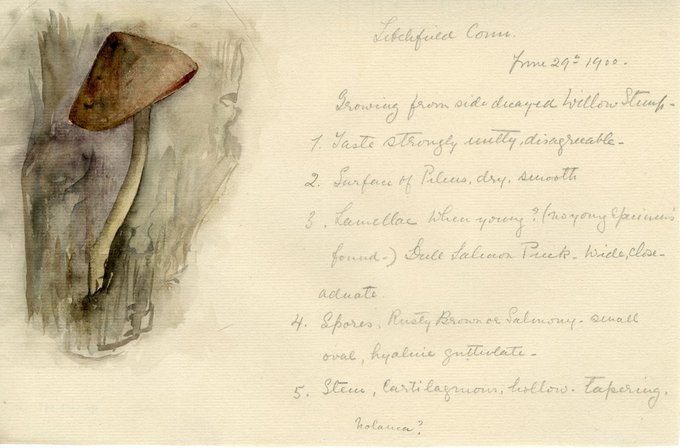 Litchfield Conn.
June 29th 1900.
Growing from side decayed Willow Stump-
1. Taste strongly nutty, disagreeable-
2. Surface of Pileus, dry, smooth
3. Lamellae when young? (no young specimens
found-) Dull Salmon Pink- Wide, close-
adnate.
4. Spores, Rusty Brown or Salmony- small
oval, hyaline guttulate-
5. Stem, Cartilaginous, hollow- tapering.
Nolanea?